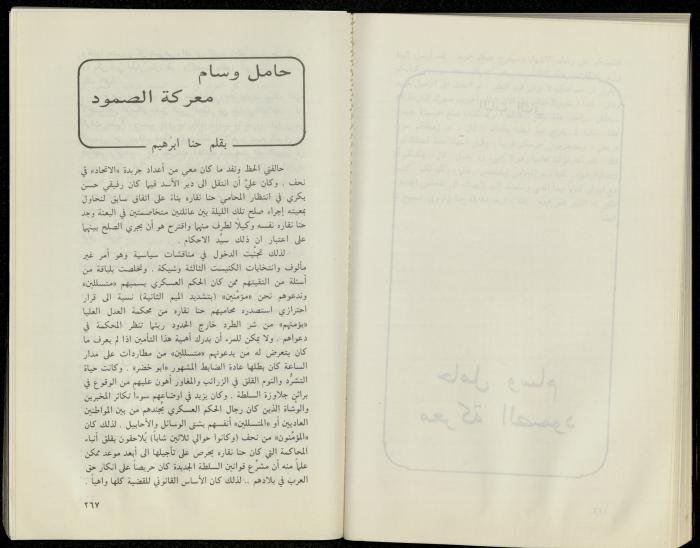 حامل وسام
معركة الصمود
بقلم حنا ابرهيم
حالفني الحظ ونفد ما كان معي من أعداد جريدة «الاتحاد» في
نحف . وكان عليّ أن انتقل الى دير الأسد فيما كان رفيقي حسن
بكري في انتظار المحامي حنا نقاره بناءً على اتفاق سابق لنحاول
بمعيته إجراء صلح تلك الليلة بين عائلتين متخاصمتين في البعنة وجد
حنا نقاره نفسه وكيلاً لطرف منهما واقترح هو أن يجري الصلح بينهما
على اعتبار ان ذلك سيّد الاحكام .
لذلك تجنّبت الدخول في مناقشات سياسية وهو أمر غير
مألوف وانتخابات الكنيست الثالثة وشيكة . وتخلصت بلباقة من
أسئلة من التقيتهم ممن كان الحكم العسكري يسميهم «متسللين»
وندعوهم نحن «مؤمّنين» (بتشديد الميم الثانية) نسبة الى قرار
احترازي استصدره محاميهم حنا نقاره من محكمة العدل العليا
«يؤمنهم» من شر الطرد خارج الحدود ريثما تنظر المحكمة في
دعواهم . ولا يمكن للمرء أن يدرك أهمية هذا التأمين اذا لم يعرف ما
كان يتعرض له من يدعونهم «متسللين» من مطاردات على مدار
الساعة كان بطلها عادة الضابط المشهور «ابو خضر» . وكانت حياة
التشرّد والنوم القلق في الزرائب والمغاور أهون عليهم من الوقوع في
براثن جلاوزة السلطة . وكان يزيد في اوضاعهم سوءاً تكاثر المخبرين
والوشاة الذين كان رجال الحكم العسكري يجنّدهم من بين المواطنين
العاديين أو «المتسللين» أنفسهم بشتى الوسائل والأحابيل . لذلك كان
«المؤمّنون» من نحف (وكانوا حوالي ثلاثين شاباً) يلاحقون بقلق أنباء
المحاكمة التي كان حنا نقاره يحرص على تأجيلها الى أبعد موعد ممكن
علماً منه أن مشرّع قوانين السلطة الجديدة كان حريصاً على انكار حق
العرب في بلادهم .. لذلك كان الأساس القانوني للقضية كلها واهياً .
٢٦٧